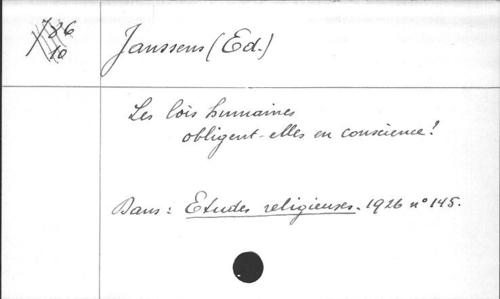 786
10
Janssens (Ed.)
Les lois humaines
obligent-elles en conscience!
Dans : Etudes religieuses. 1926 n° 145.